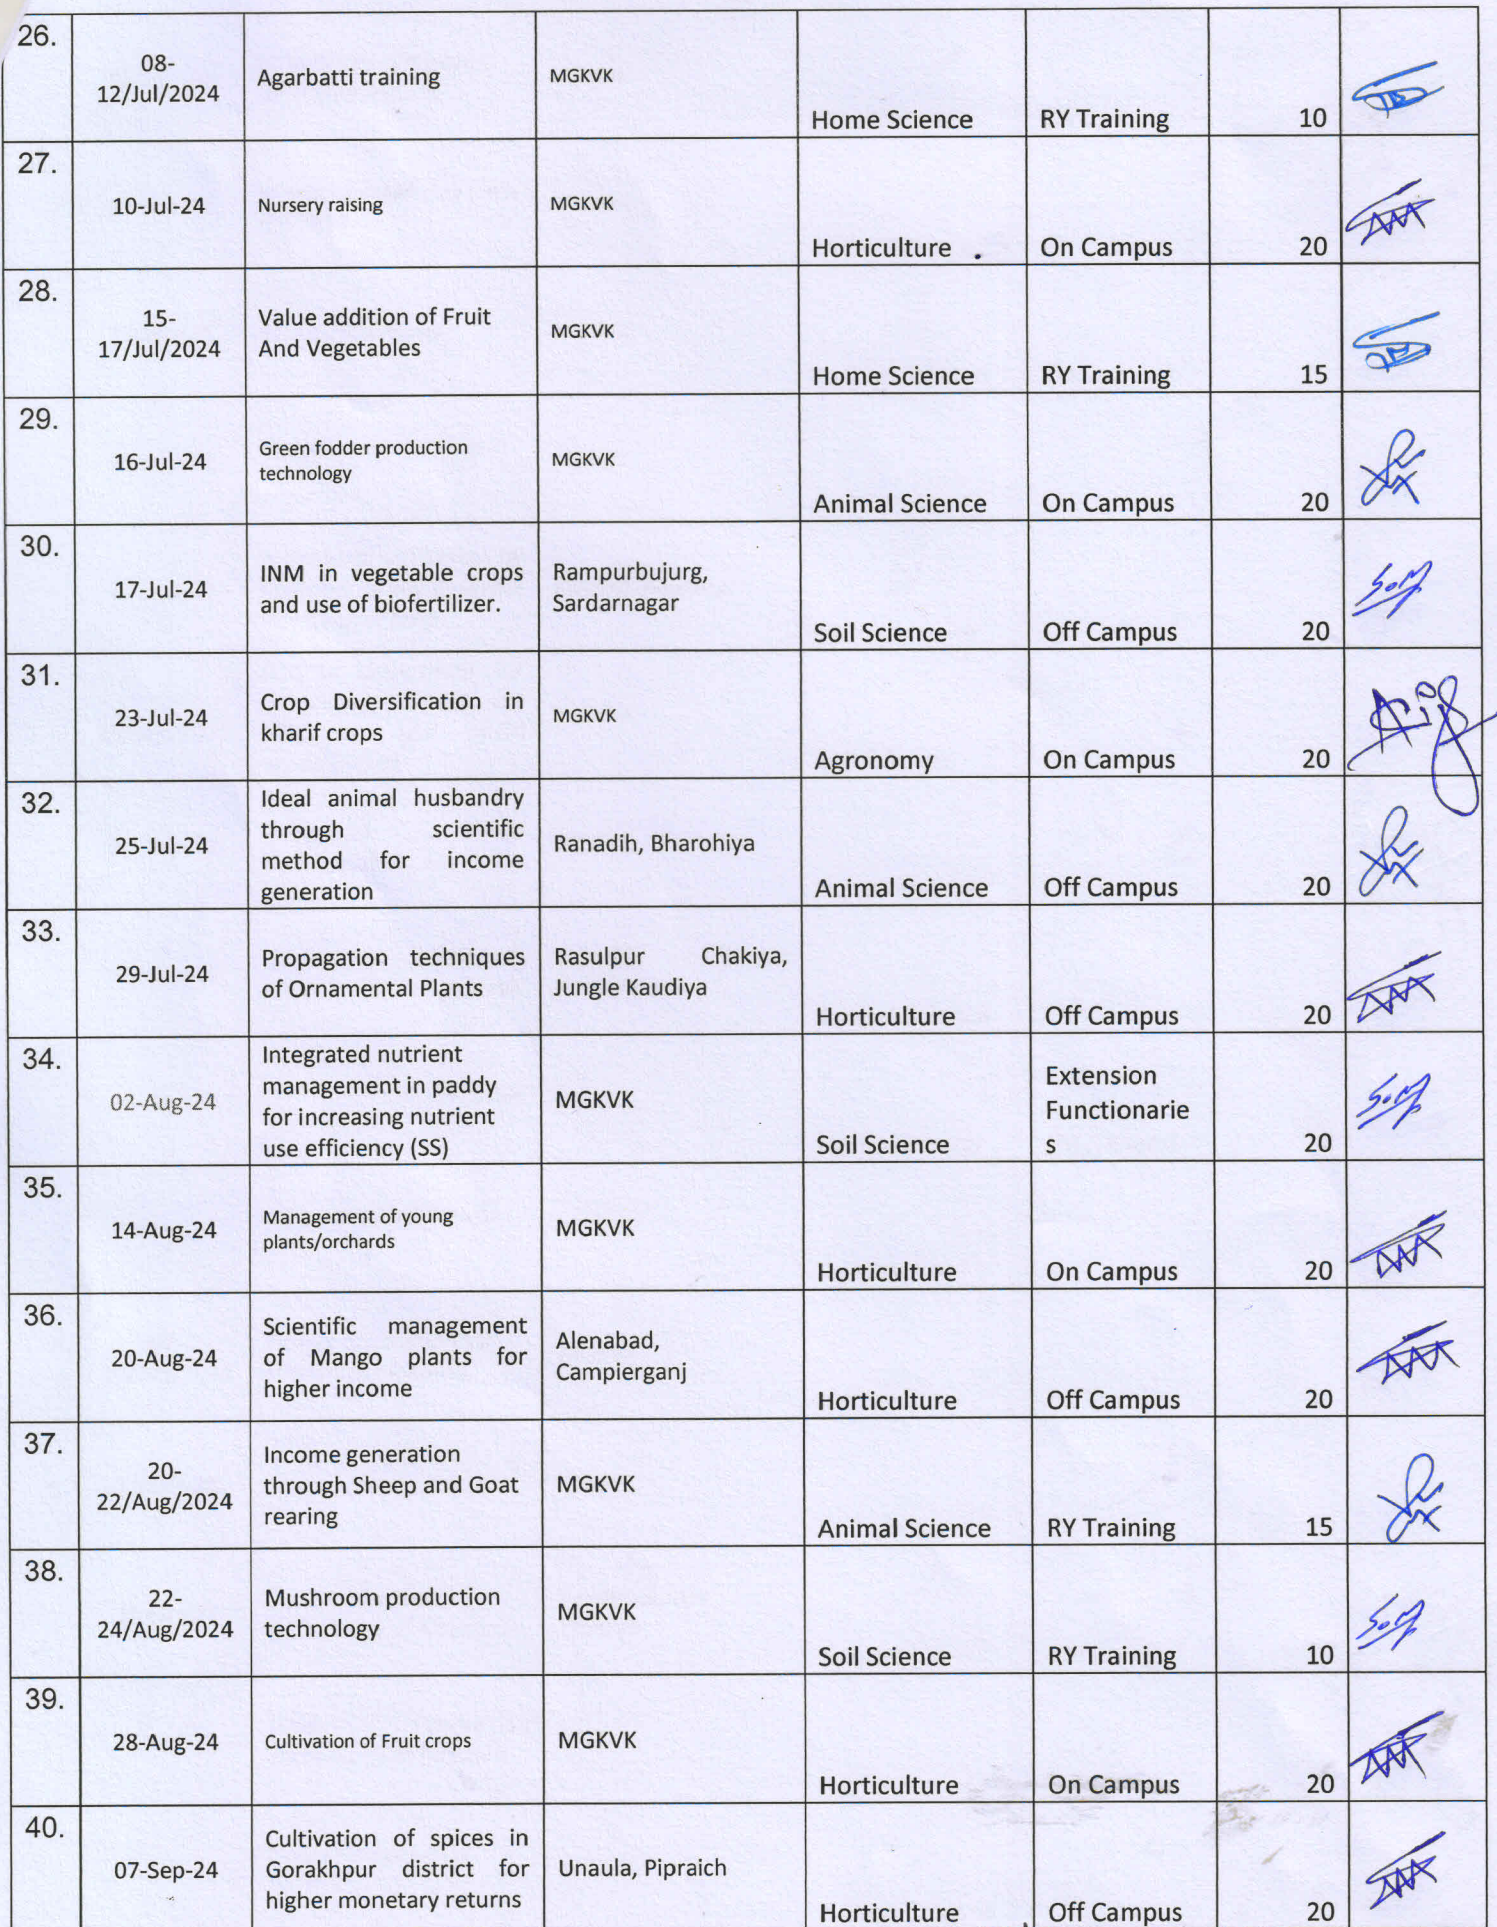 26.
08-
12/Jul/2024
Agarbatti training
MGKVK
Home Science
RY Training
10
27.
10-Jul-24
Nursery raising
MGKVK
Horticulture
On Campus
20
28.
15-
17/Jul/2024
Value addition of Fruit
And Vegetables
MGKVK
Home Science
RY Training
15
29.
16-Jul-24
Green fodder production
technology
MGKVK
Animal Science
On Campus
20
30.
17-Jul-24
INM in vegetable crops
and use of biofertilizer.
Rampurbujurg,
Sardarnagar
Soil Science
Off Campus
20
31.
23-Jul-24
Crop Diversification in
kharif crops
MGKVK
Agronomy
On Campus
20
32.
25-Jul-24
Ideal animal husbandry
through scientific
method for income
generation
Ranadih, Bharohiya
Animal Science
Off Campus
20
33.
29-Jul-24
Propagation techniques
of Ornamental Plants
Rasulpur Chakiya,
Jungle Kaudiya
Horticulture
Off Campus
20
34.
02-Aug-24
Integrated nutrient
management in paddy
for increasing nutrient
use efficiency (SS)
MGKVK
Soil Science
Extension
Functionarie
s
20
35.
14-Aug-24
Management of young
plants/orchards
MGKVK
Horticulture
On Campus
20
36.
20-Aug-24
Scientific management
of Mango plants for
higher income
Alenabad,
Campierganj
Horticulture
Off Campus
20
37.
20-
22/Aug/2024
Income generation
through Sheep and Goat
rearing
MGKVK
Animal Science
RY Training
15
38.
22-
24/Aug/2024
Mushroom production
technology
MGKVK
Soil Science
RY Training
10
39.
28-Aug-24
Cultivation of Fruit crops
MGKVK
Horticulture
On Campus
20
40.
07-Sep-24
Cultivation of spices in
Gorakhpur district for
higher monetary returns
Unaula, Pipraich
Horticulture
Off Campus
20